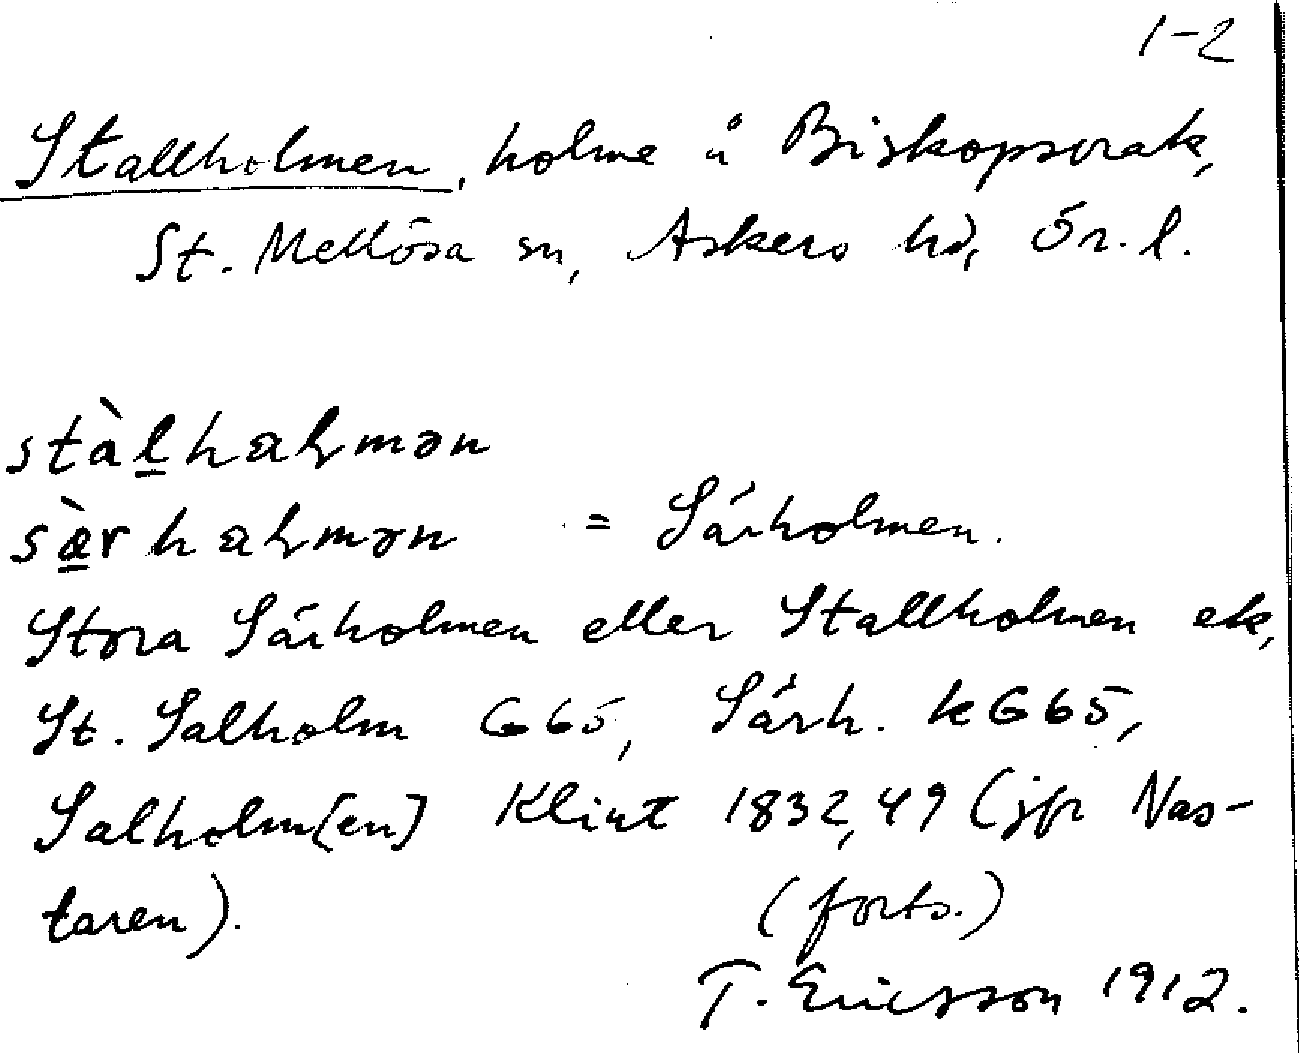 1-2
Stallholmen, holme å Biskopsvrak,
St. Mellösa sn, Askers hd, Ör. l.
stàl̲haɽmən
sæ̲̀rhaɽmən = Särholmen.
Stora Särholmen eller Stallholmen ek,
St. Salholm G65, Särh. kG65,
Salholm[en] Klint 1832,49 (jfr Nas-
taren).
(forts.)
T. Ericsson 1912.